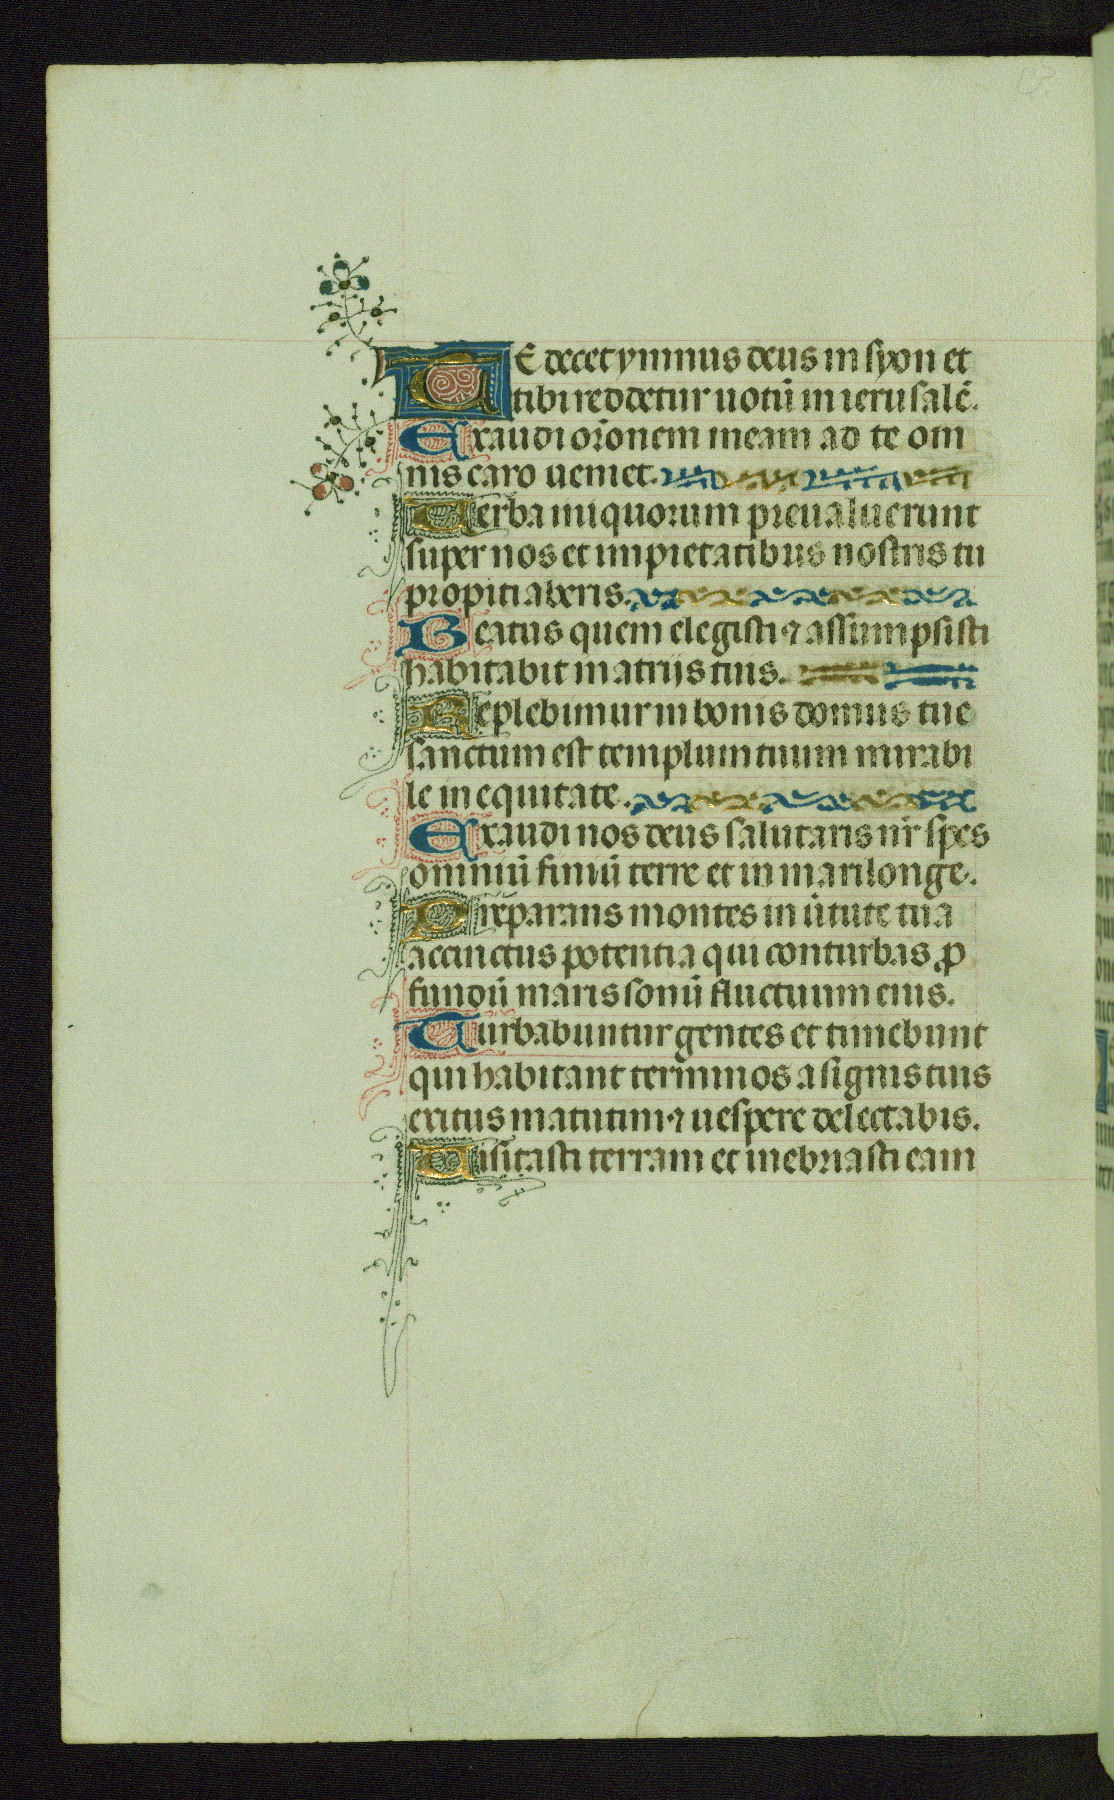 TE decet ymnus deus in syon et
tibi reddetur uotū in ierusalē.
Exaudi or̄onem meam ad te om
nis caro ueniet.
Verba iniquorum preualuerunt
super nos et impietatibus nostris tu
propitiaberis.
Beatus quem elegisti ⁊ assumpsisti
habitabit in atrijs tuis.
Replebimur in bonis domus tue
sanctum est templum tuum mirabi
le in equitate.
Exaudi nos deus salutaris nr̄ spes
omniū finiū terre et in mari longe.
Preparans montes in ūtute tua
accinctus potentia qui conturbas ꝓ
fundū maris sonū fluctuum eius.
Turbabuntur gentes et timebunt
qui habitant terminos a signis tuis
exitus matutini ⁊ uespere delectabis.
Visitasti terram et inebriasti eam